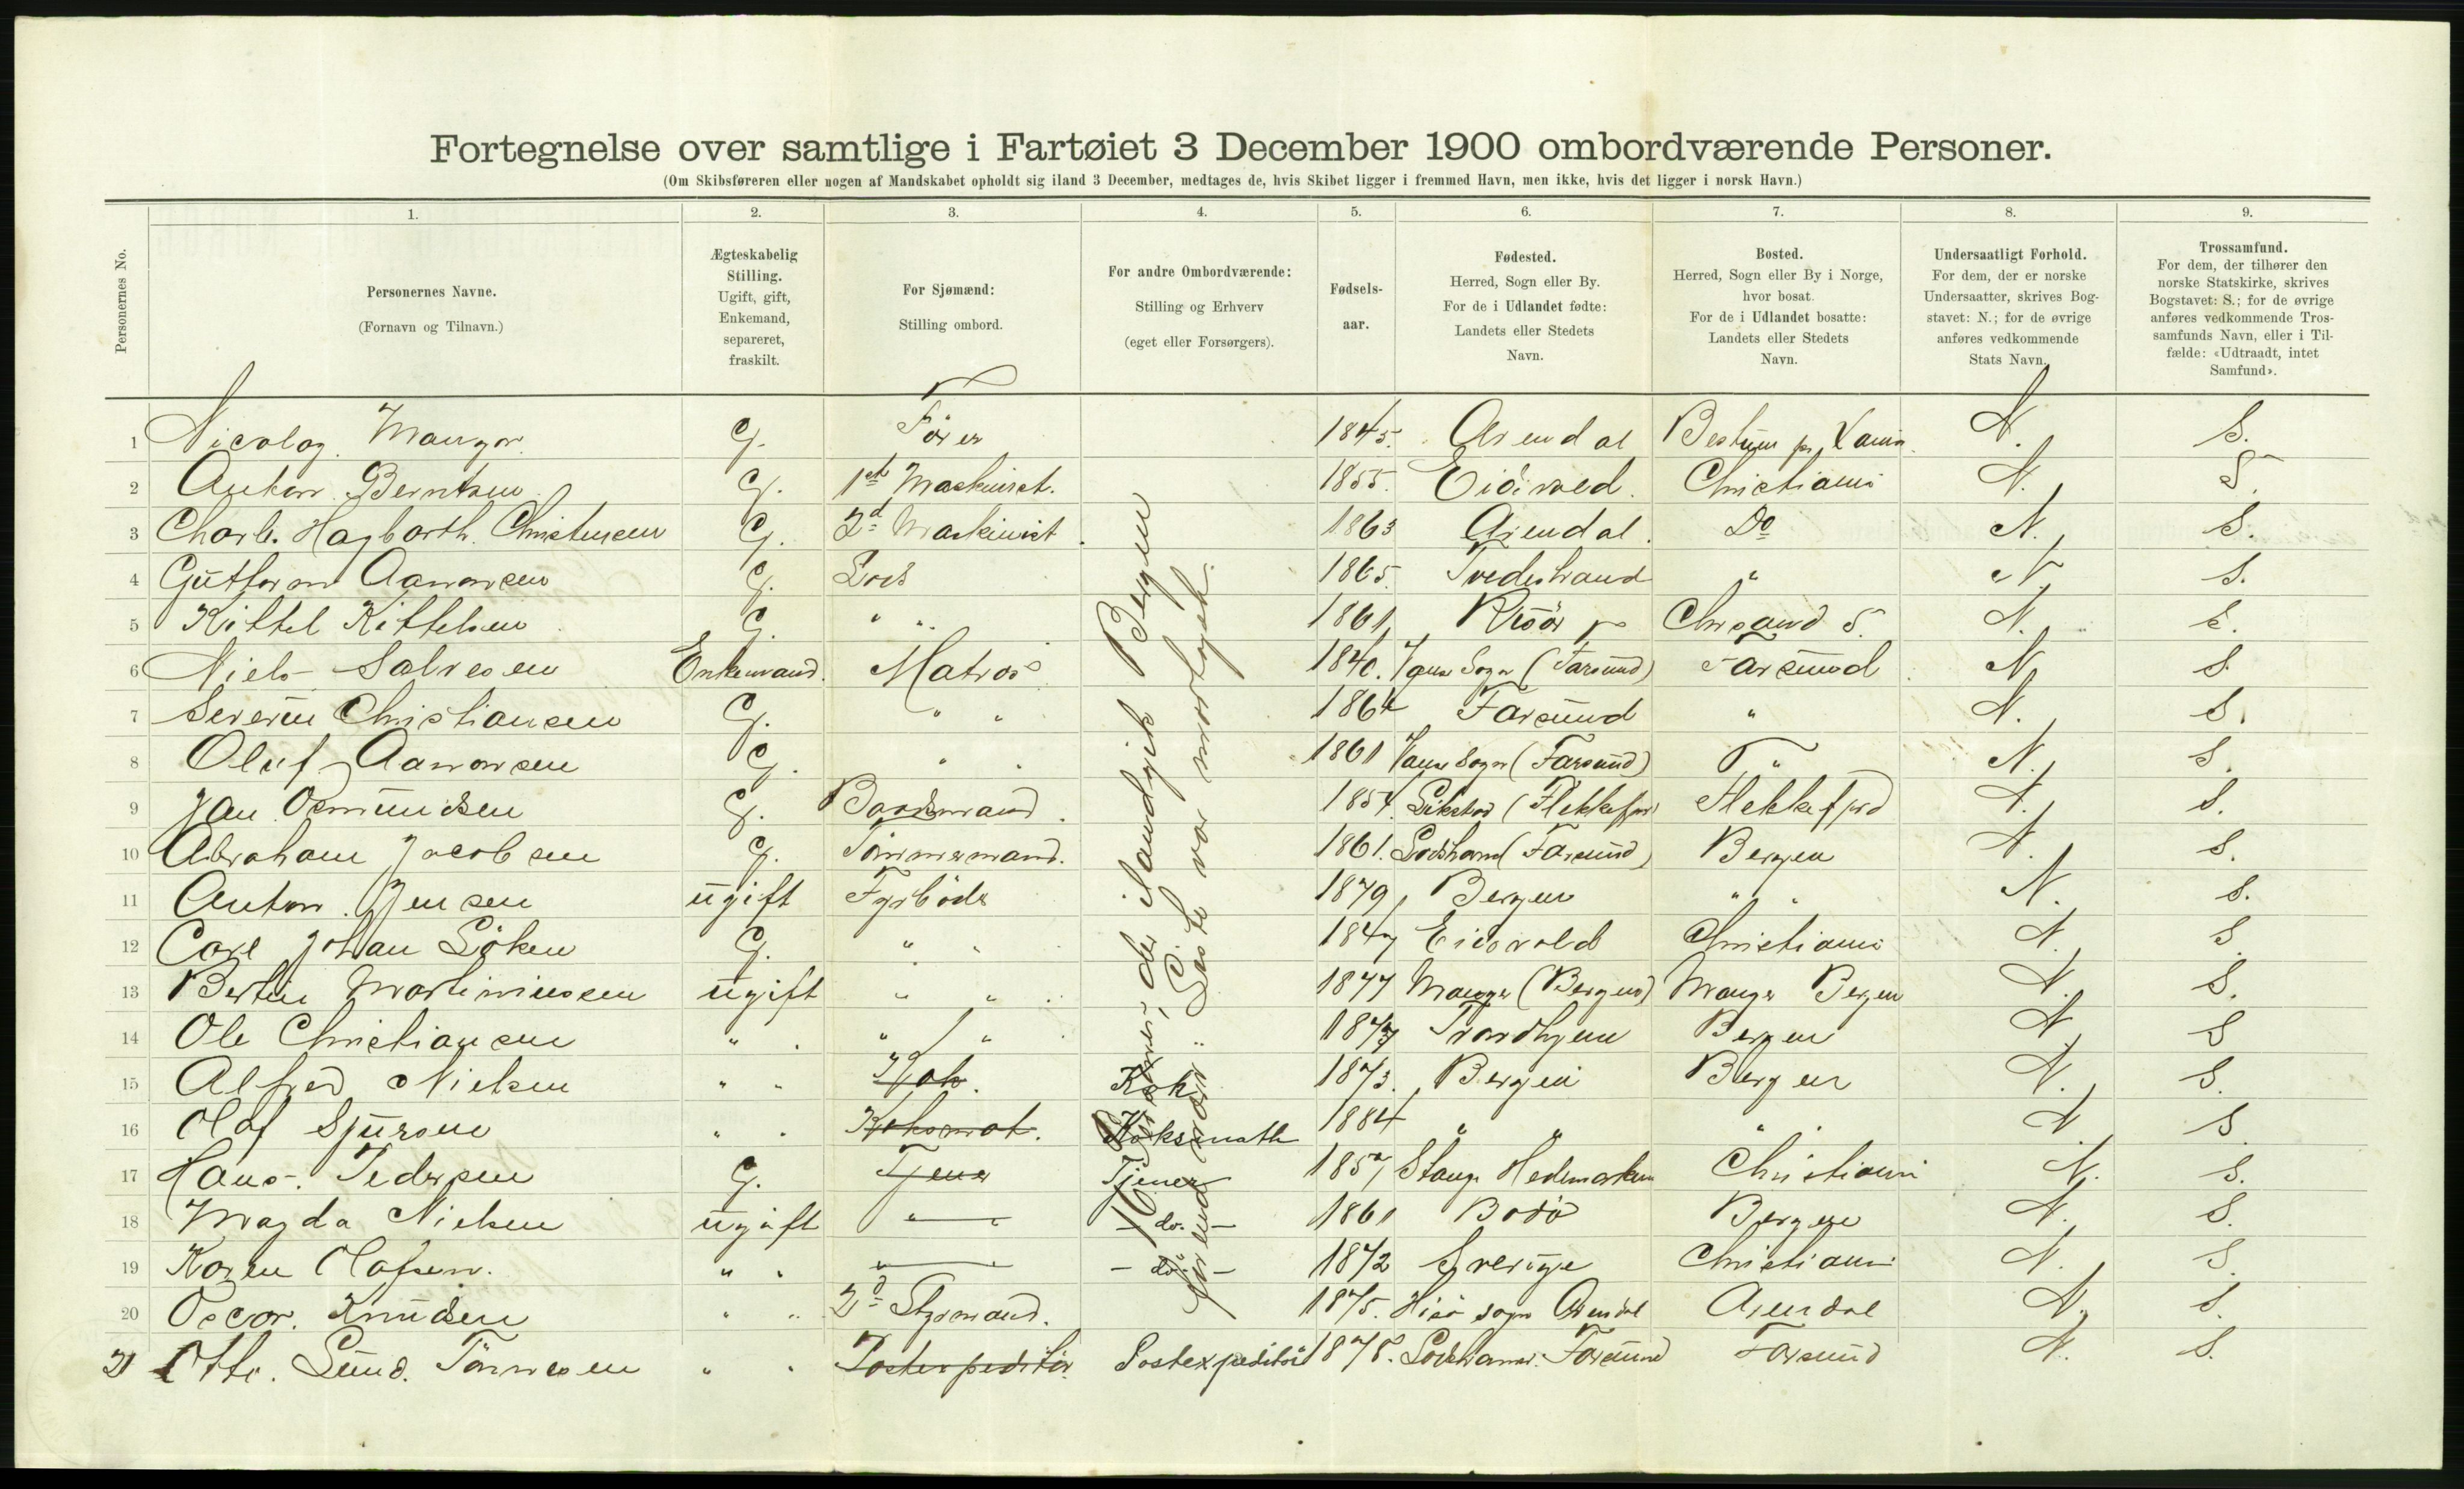 Fortegnelse over samtlige i Fartøiet 3 December 1900 ombordværende Personer.
(Om Skibsføreren eller nogen af Mandskabet opholdt sig iland 3 December, medtages de, hvis Skibet ligger i fremmed Havn, men ikke, hvis det ligger i norsk Havn.)
Personernes No.
1. 2. 3. 4. 5. 6. 7. 8. 9.
Personernes Navne. (Fornavn og Tilnavn.)
Ægteskabelig Stilling. Ugift, gift, Enkemand, separeret, fraskilt.
For Sjømænd: Stilling ombord.
For andre Ombordværende: Stilling og Erhverv (eget eller Forsørgers).
Fødsels-aar.
Fødested. Herred, Sogn eller By. For de i Udlandet fødte: Landets eller Stedets Navn.
Bosted. Herred, Sogn eller By i Norge, hvor bosat. For de i Udlandet bosatte: Landets eller Stedets Navn.
Undersaatligt Forhold. For dem, der er norske Undersaatter, skrives Bogstavet: N.; for de øvrige anføres vedkommende Stats Navn.
Trossamfund. For dem, der tilhører den norske Statskirke, skrives Bogstavet: S.; for de øvrige anføres vedkommende Trossamfunds Navn, eller i Tilfælde: «Udtraadt, intet Samfund».
1 Nicolay G. Fører 1845. Arendal N. S.
2 Anton Berntsen G. 1ste Maskinist. 1855. Eidsvold. Christiania N. S.
3 Charls. Hagbarth. Christensen G. 2d Maskinist 1863 Arendal. Do N. S.
4 Guttorm Aanonsen G. Lods 1865. Tvedestrand " N S.
5 Kittel Kittelsen G. " " 1861 Risör Chrsand S. N. S.
6 Niels Salvesen Enkemand. Matros 1840. Vanse Sogn (Farsund) Farsund N S.
7 Severin Christiansen G. " " 1864 Farsund " N. S.
8 Oluf Aanonsen G. " " 1861 Vanse Sogn (Farsund) " N. S.
9 Jan Osmundsen G. Baadsmand. 1854. Flekkefjord N. S.
10 Abraham Jacobsen G. Tömmermand. 1861. (Farsund) Bergen N. S.
11 Anton. Jensen ugift Fyrböder 1879 Bergen " " N. S.
12 Carl Johan Löken G. " " 1847 Eidsvold Christiania N. S
13 Bertin Martiniussen ugift " " 1877 Manger (Bergen) Manger Bergen N. S.
14 Ole Christiansen " " " " Trondhjem Bergen N. S
15 Alfred Nielsen " " Kok. Kok 1873. Bergen Bergen N. S.
16 Olaf " " Koksmat. Koksmath 1884 " " " " N S
17 Hans. Pedersen G. Tjener Tjener Stange Hedemarken Christiania N. S.
18 Magda Nielsen ugift " - do. - 1861 Bodö Bergen N. S.
19 Karen Olafsen. " " " - do. - 1872 Sverige Christiania N. S
20 Oscar. Knudsen " " 2d Styrmand. 1875. Hisö sogn Arendal Arendal N. S.
21 Otto. Lund. Tönnesen " " Postexpeditör Postexpeditör 1878. Farsund Farsund N. S.
der ilandgik Bergen